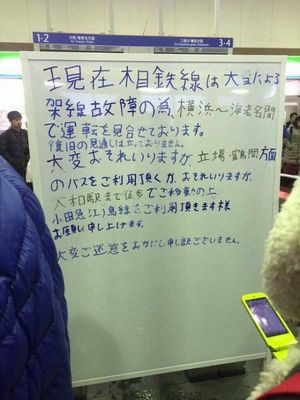 1・2 大和 海老名方面
3・4 二俣川 横浜方面
現在相鉄線は大雪による
架線故障の為、横浜～海老名間
で運転を見合せております。
復旧の見通しは立っておりません。
大変おそれいりますが、立場・鶴間方面
のバスをご利用頂くか、おそれいりますが、
大和駅まで徒歩でご移動の上
小田急江ノ島線をご利用頂きます様
お願い申し上げます。
大変ご迷惑をおかけし申し訳ございません。